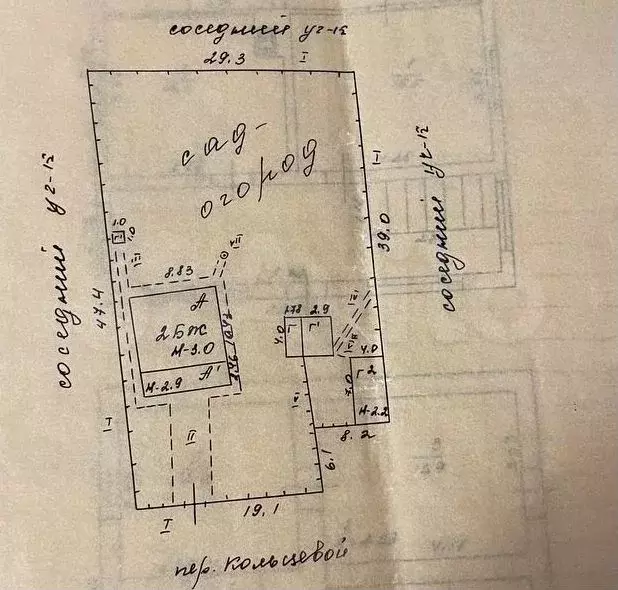 соседний уч-к
29.3
I
сад-
огород
соседний уч-к
I
39.0
соседний уч-к
47.4
I
1.0
1.0
III
VII
8.83
А
2БЖ
Н-3.0
А'
Н-2.9
1.73
2.9
4.0
Г
Г'
IV
4.0
7.0
Г2
Н-2.2
V
8.2
6.1
II
I
19.1
пер. Кольцевой